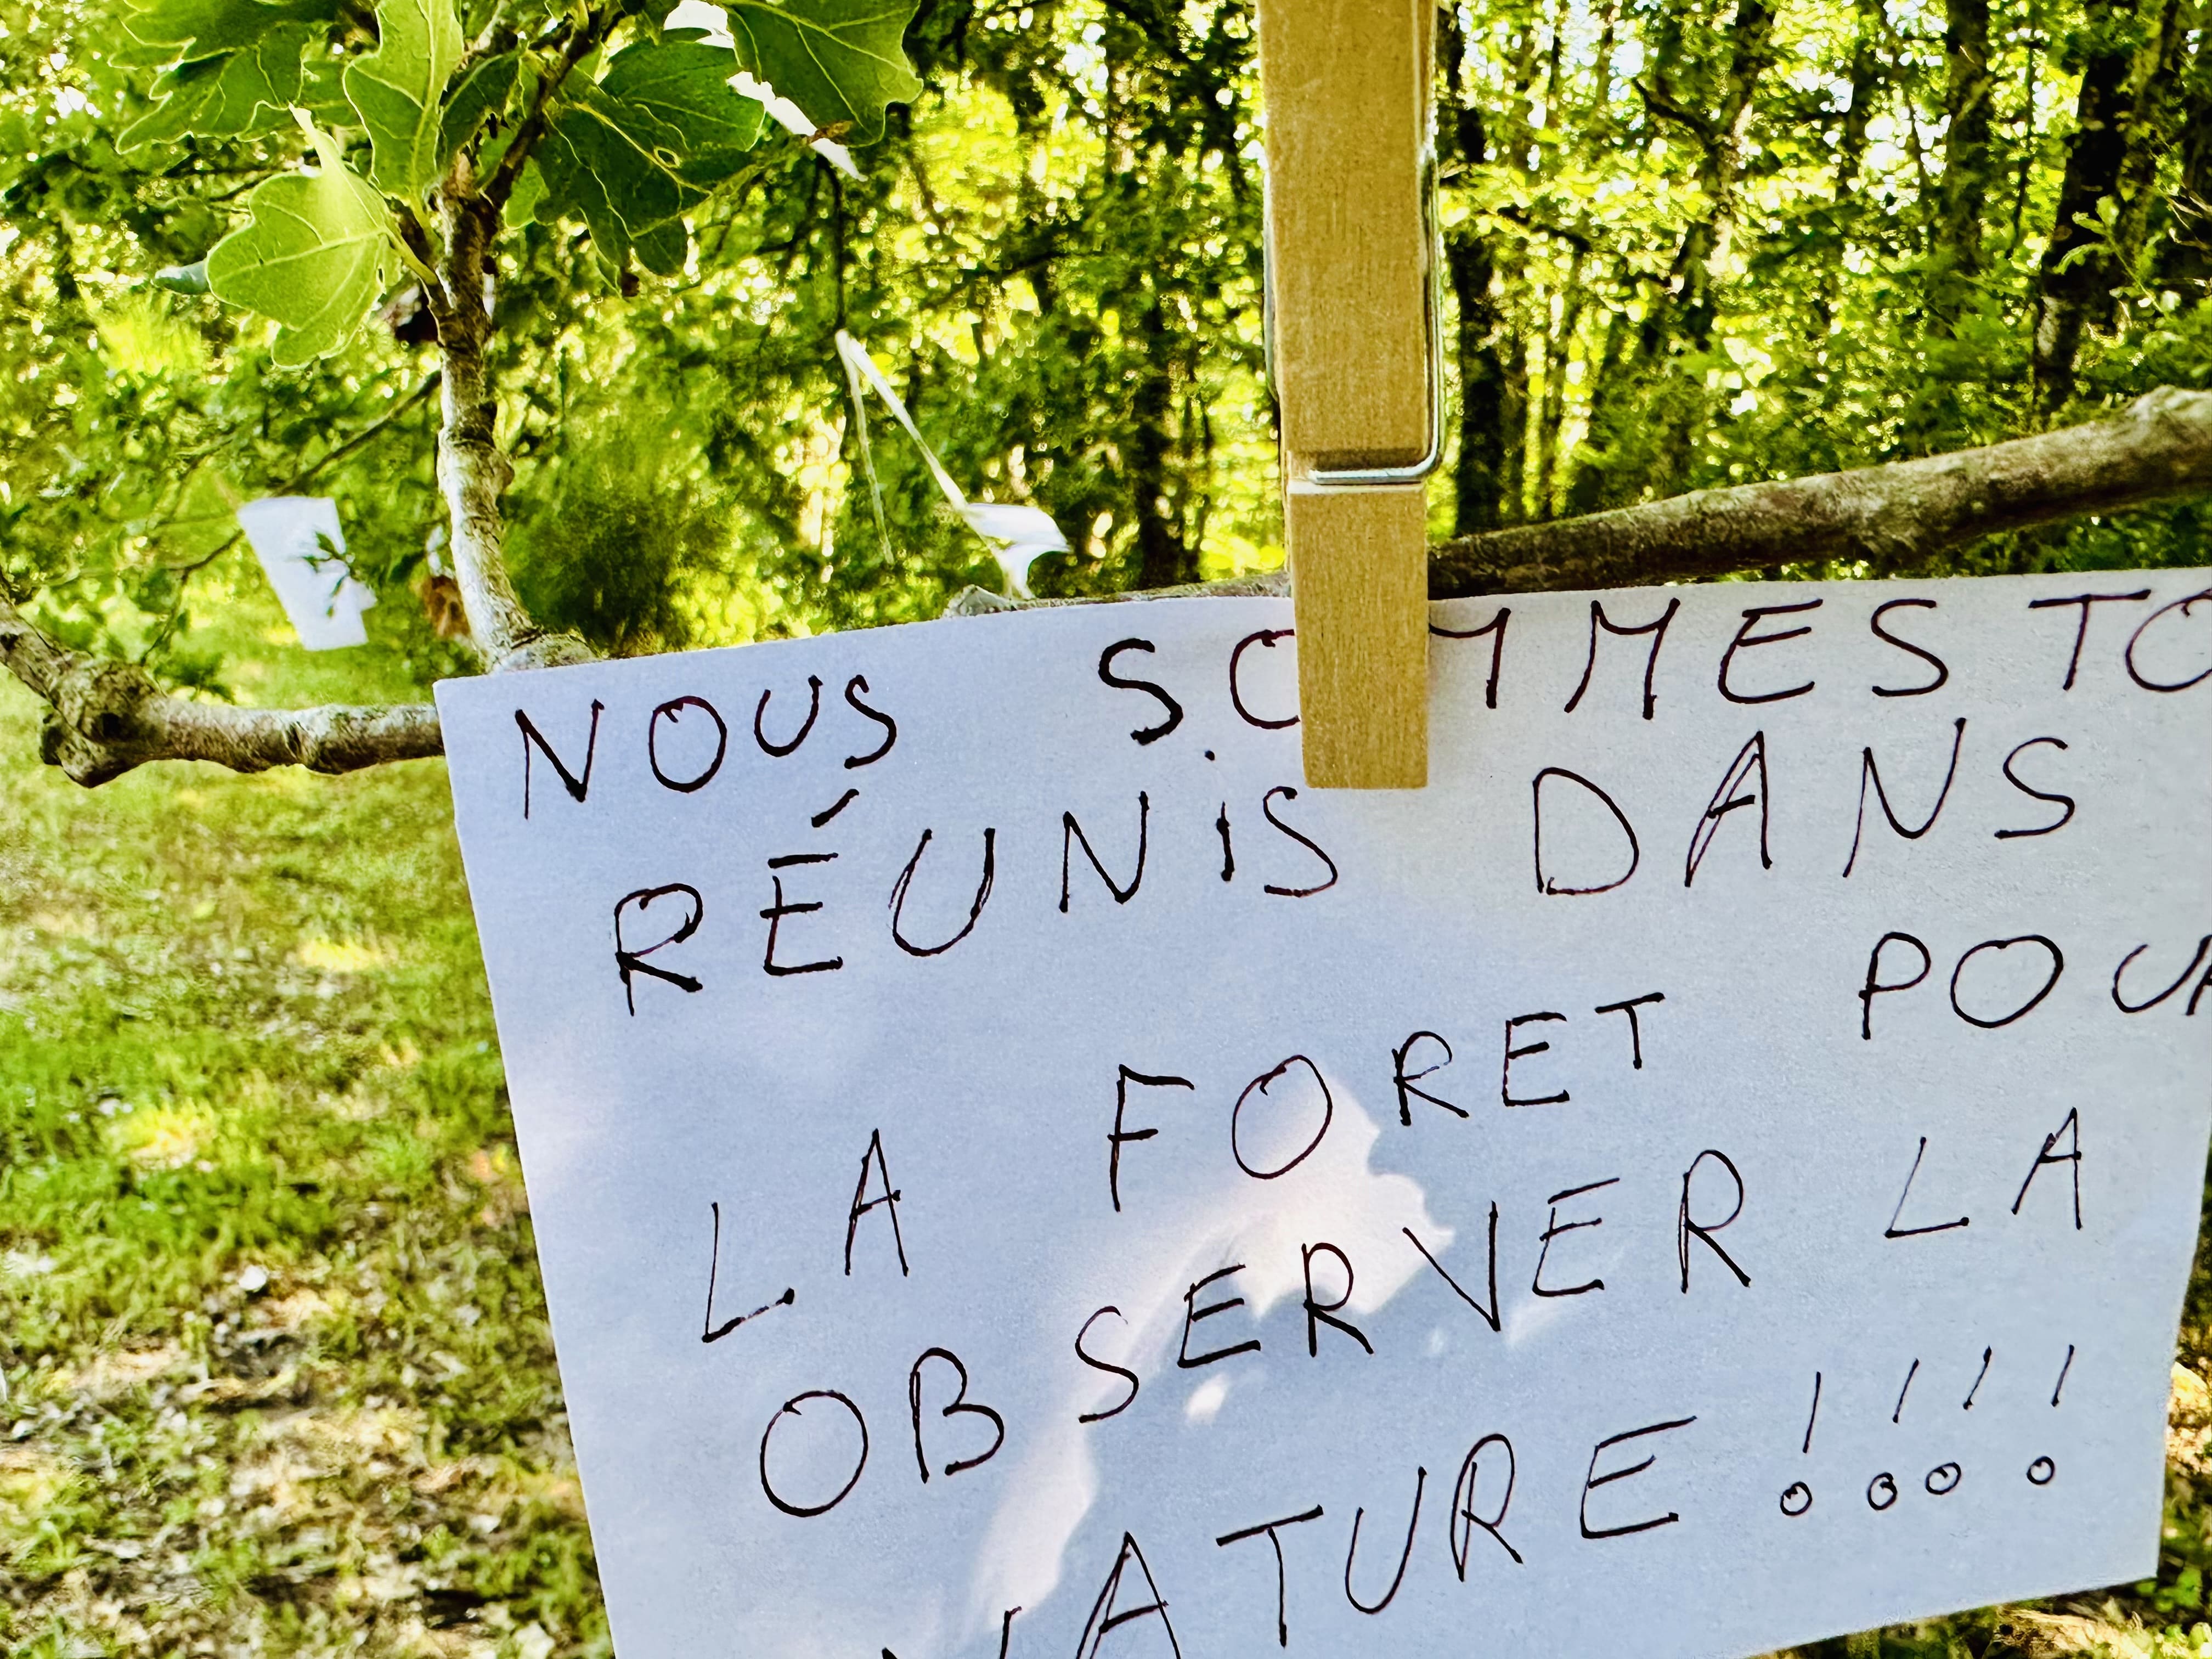 NOUS SOMMES TO
RÉUNIS DANS
LA FORET POUR
OBSERVER LA
NATURE !!!!